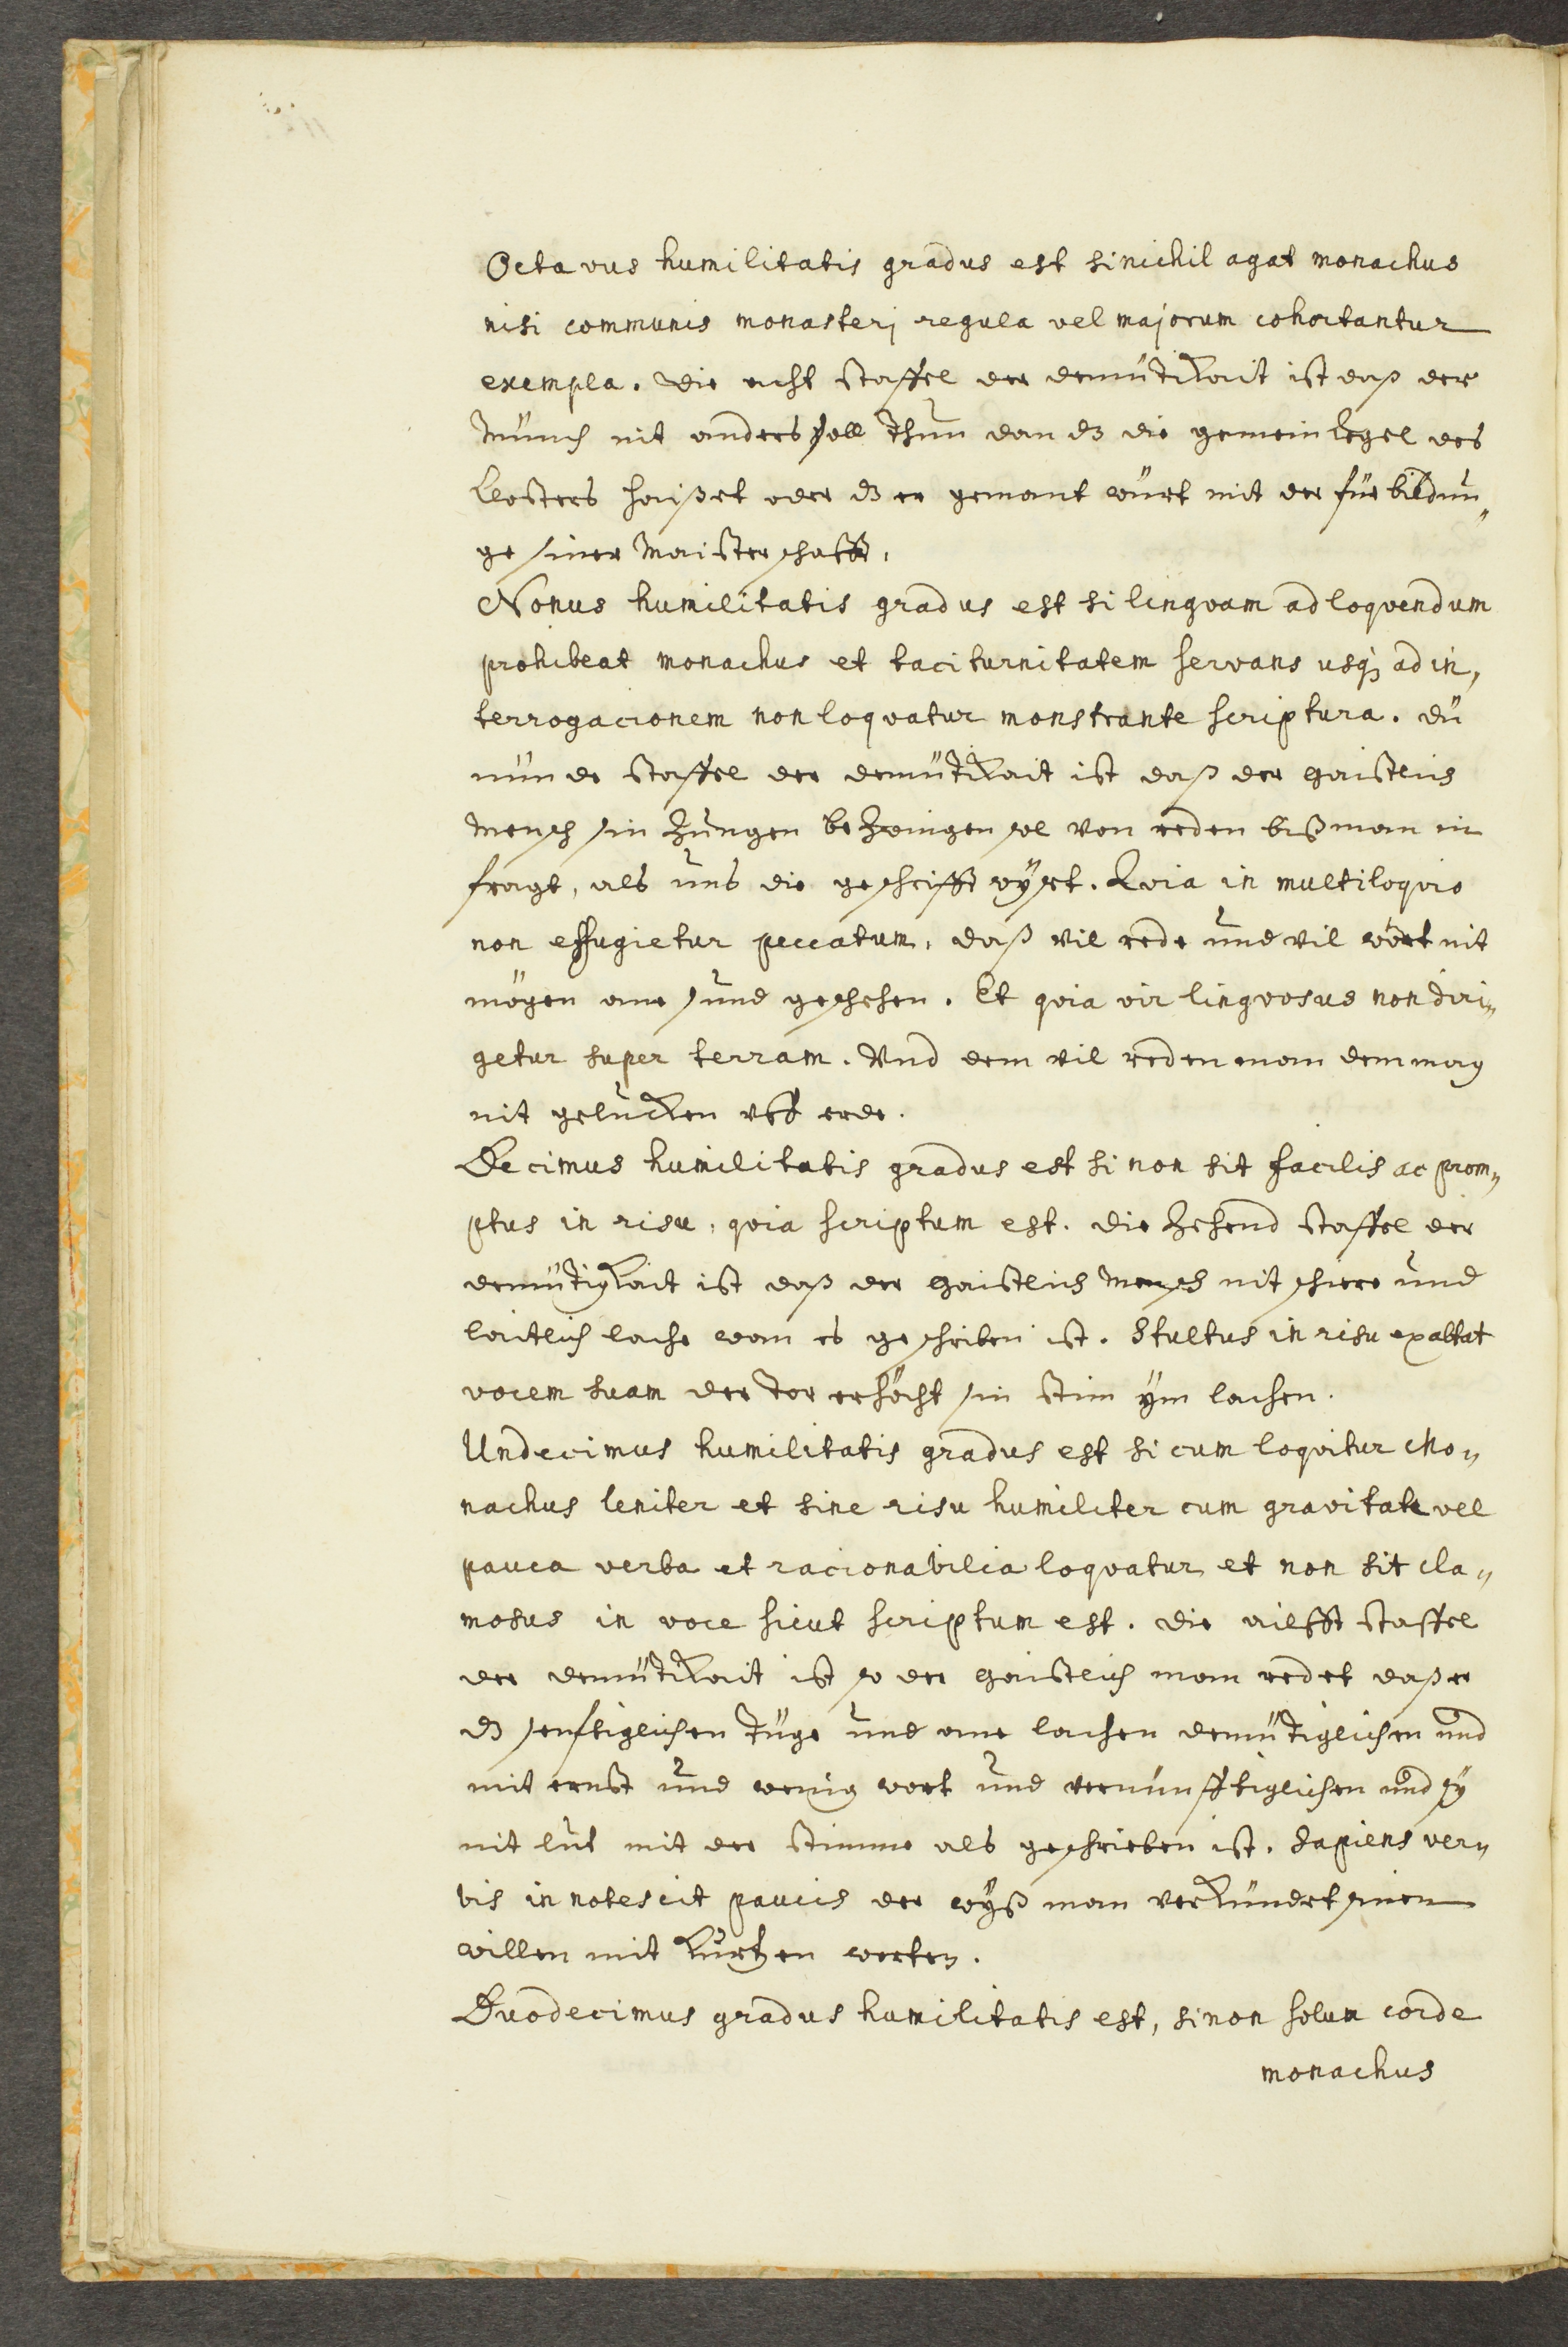 Octavus humilitatis gradus est si nichil agat monachus
nisi communis monasterj regula vel majorum cohortantur
exempla. die acht staffel der demütikait ist daß der
Münch nit anders soll thun dan dz die gemein Regel des
Closters haisset oder dz er gemant würt mit der fürbildun„
ge siner Maisterschafft.
Nonus humilitatis gradus est si lingvam ad loqvendum
prohibeat monachus et taciturnitatem servans usq; ad in„
terrogacionem non loqvatur monstrante scriptura. dü
nünde staffel der demütikait ist daß der Gaistlich
Mensch sin Zungen bezwingen sol von reden biß man in
fragt, als uns die geschrifft wyst. Qvia in multiloqvio
non effugietur peccatum. daß vil rede und vil wört nit
mögen one sund geschehen. Et qvia vir lingvosus non diri„
getur super terram. Vnd dem vil reden man dem mag
nit gelucken uff erde.
Decimus humilitatis gradus est si non sit facilis ac prom„
ptus in risu, qvia scriptum est. die Zehend staffel der
demütigkait ist daß der Gaistlich Mensch nit schiere und
laitlich lache wan es geschriben ist. Stultus in risu exaltat
vocem suam der Tor erhöcht sin stim ym lachen.
Undecimus humilitatis gradus est si cum loqvitur Mo„
nachus leniter et sine risu humiliter cum gravitate vel
pauca verba et racionabilia loqvatur et non sit cla„
mosus in voce sicut scriptum est. die ailfft staffel
der demütikait ist so der Gaistlich man redet daß er
dz senftiglichen Tüge und one lachen demütiglichen und
mit ernst und wenig wort und vernünfftiglichen und sy
nit lut mit der stimme als geschrieben ist. Sapiens ver„
bis innotescit paucis der wyß man verkündet sinen
willen mit kurtzen worten.
Duodecimus gradus humilitatis est, si non solum corde
monachus